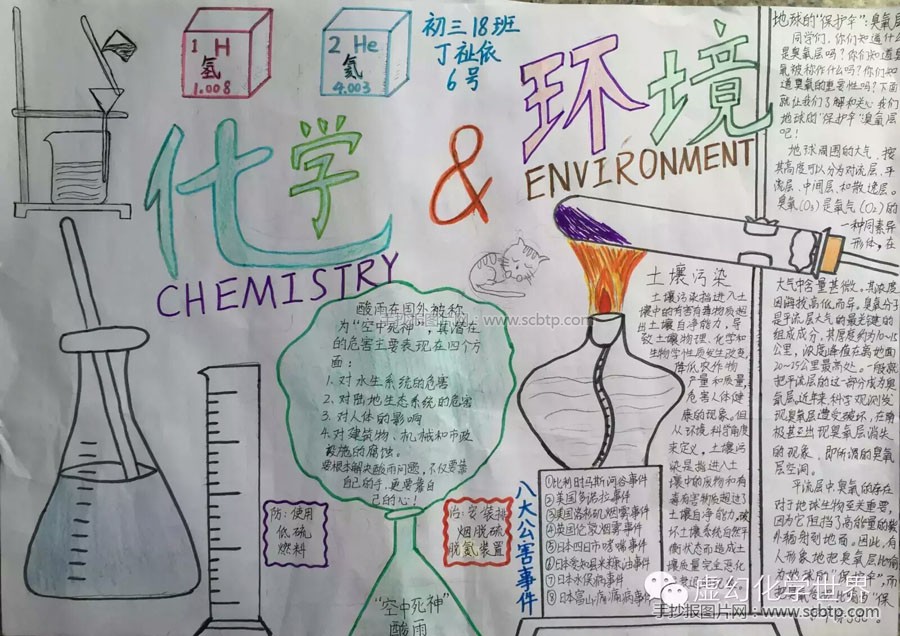 1 H
氢
1.008
2 He
氦
4.003
初三18班
丁祉依
6号
化学
&
环境
CHEMISTRY
ENVIRONMENT
酸雨在国外被称
为“空中死神”，其潜在
的危害主要表现在四个方
面：
1.对水生系统的危害
2.对陆地生态系统的危害
3.对人体的影响
4.对建筑物、机械和市政
设施的腐蚀。
要根本解决酸雨问题，不仅要靠
自己的手，更要靠自
己的心！
防：使用
低硫
燃料
治：安装排
烟脱硫
脱氮装置
“空中死神”
酸雨
八大公害事件
①比利时马斯河谷事件
②美国多诺拉事件
③美国洛杉矶烟雾事件
④英国伦敦烟雾事件
⑤日本四日市哮喘事件
⑥日本爱知县米糠油事件
⑦日本水俣病事件
⑧日本富山痛痛病事件
土壤污染
土壤污染指进入土
壤中的有害有毒物质超
出土壤自净能力，导
致土壤物理、化学和
生物学性质发生改变，
降低农作物
产量和质量，
危害人体健
康的现象。但
从环境科学角度
来定义，土壤污
染是指进入土
壤中的废物和有
毒有害物质超过了
土壤自净能力，破
坏土壤系统自然平
衡状态而造成土
壤质量完全恶化
地球的“保护伞”：臭氧层
同学们，你们知道什么
是臭氧层吗？你们知道臭
氧被称作什么吗？你们知
道臭氧的重要性吗？下面
就让我们了解和关心我们
地球的“保护伞”臭氧层
吧！
地球周围的大气，按
其高度可以分为对流层、平
流层、中间层、和散逸层。
臭氧(O₃)是氧气(O₂)的
一种同素异
形体，在
大气中含量甚微。其浓度
因海拔高低而异，臭氧分子
是平流层大气的最关键的
组成成分，其厚度约为10~15
公里，浓度峰值在离地面
20~25公里最高处。一般就
把平流层的这一部分成为臭
氧层。近年来，科学观测发
现臭氧层遭受破坏，在南
极甚至出现臭氧层消失
的现象，即所谓的臭氧
层空洞。
平流层中，臭氧的存在
对于地球生物至关重要，
因为它阻挡了高能量的紫
外辐射到地面。因此，有
人形象地把臭氧层比喻
手抄报图片网：www.scbtp.com
虚幻化学世界
手抄报图片网：www.scbtp.com